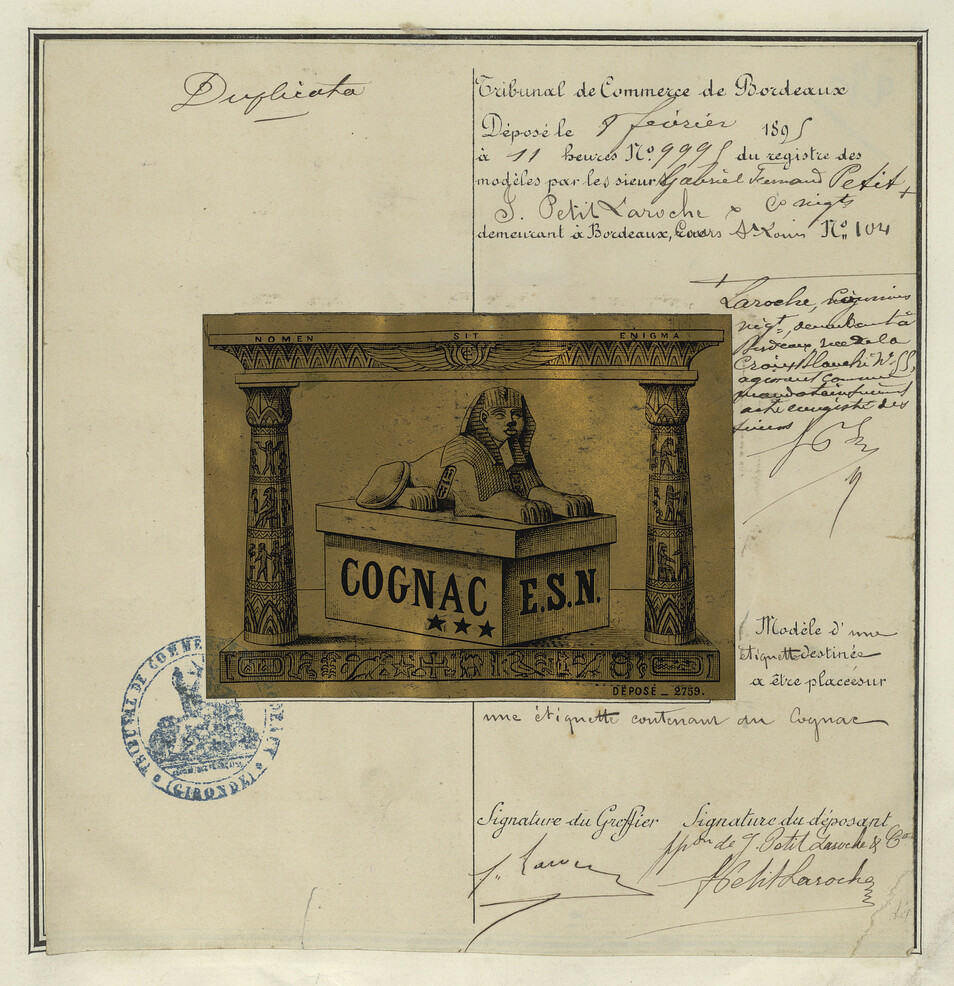 Duplicata
Tribunal de Commerce de Bordeaux
Déposé le 8 février 1895
à 11 heures No. 9995 du registre des
modèles par les sieurs Gabriel Fernand Petit +
J. Petit Laroche & Co négts
demeurant à Bordeaux, Cours St Louis No. 104
+ Laroche,
négt, demeurant à
Bordeaux, rue de la
Croix Blanche No 55,
agissant comme
mandataire
acte enregistré des
sieurs
NOMEN SIT ENIGMA
COGNAC E.S.N.
DÉPOSÉ _ 2759.
Modèle d'une
étiquette destinée
a être placée sur
une étiquette contenant du Cognac
TRIBUNAL DE COMMERCE DE BORDEAUX
(GIRONDE)
Signature du Greffier Signature du déposant
ppon de J. Petit Laroche & Co
Petit Laroche